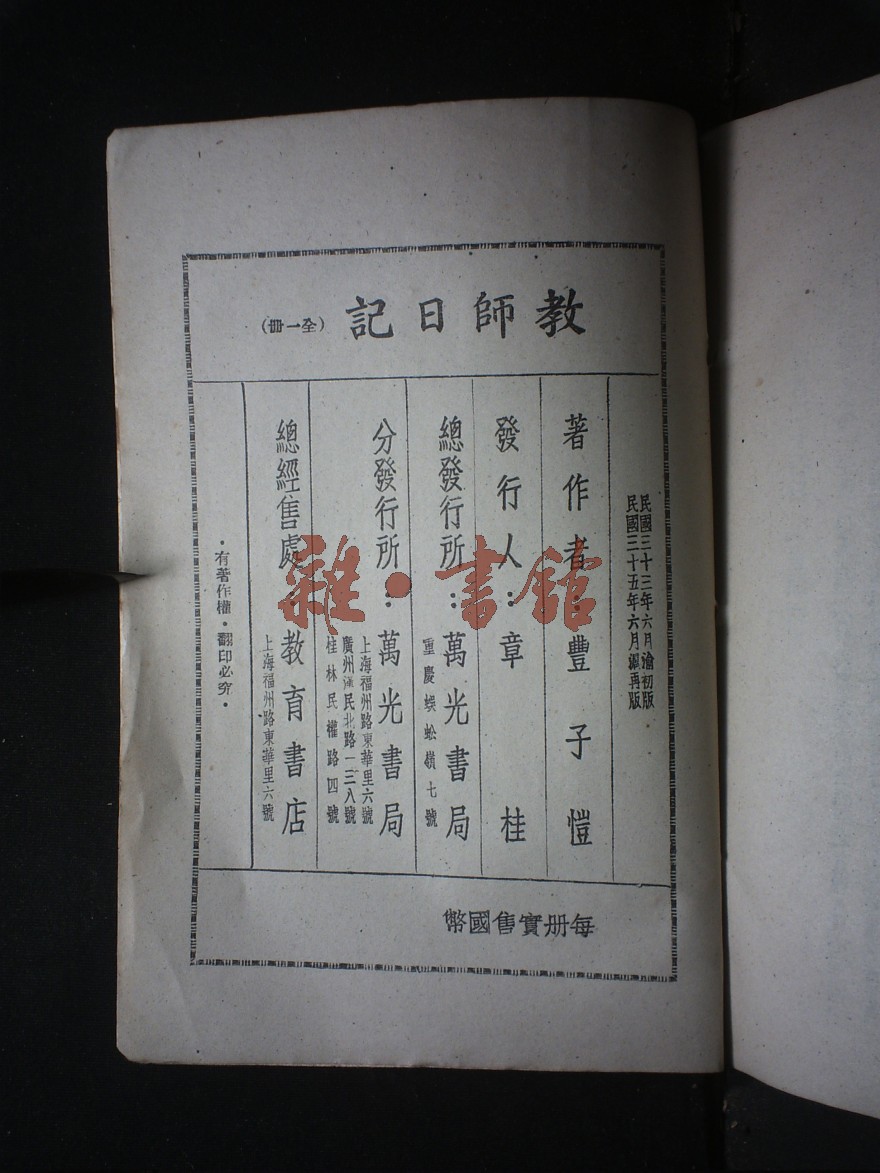 教師日記（全一冊）
民國三十三年六月渝初版
民國三十五年六月滬再版
著作者：豐子愷
發行人：章桂
總發行所：萬光書局
重慶蜈蚣嶺七號
分發行所：萬光書局
上海福州路東華里六號
廣州漢民北路一三八號
桂林民權路四號
總經售處 教育書店
上海福州路東華里六號
·有著作權·翻印必究·
每册實售國幣
雜·書館